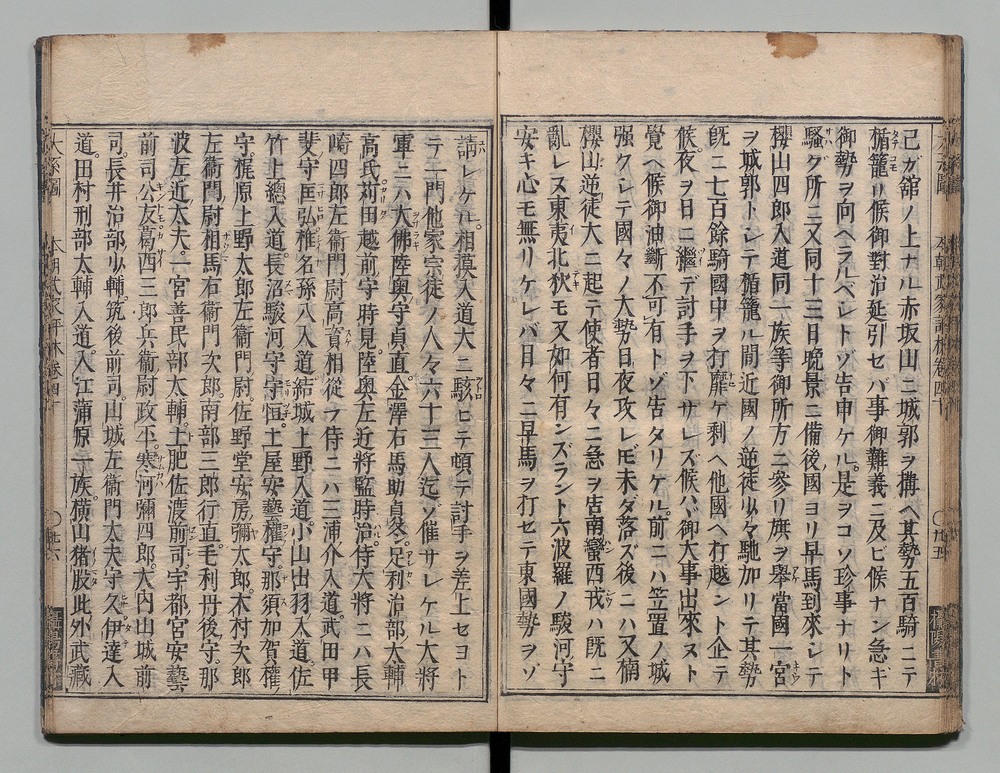 己ガ舘ノ上ナル赤坂山ニ城郭ヲ搆ヘ其勢五百騎ニテ
楯籠リ候御對治延引セバ事御難義ニ及ビ候ナン急ギ
御勢ヲ向ヘラルベシトゾ告申ケル是ヲコソ珍事ナリト
騷グ所ニ又同十三日晩景ニ備後ノ國ヨリ早馬到來シテ
櫻山四郎入道同一族等御所方ニ參リ旗ヲ舉當國一宮
ヲ城郭トシテ楯籠ル間近國ノ逆徒少々馳加リテ其勢
既ニ七百餘騎國中ヲ打靡ケ剩ヘ他國ヘ打越ント企テ
候夜ヲ日ニ繼デ討手ヲ下サレズ候ハヾ御大事出來ヌト
覺ヘ候御油斷不可有トゾ告タリケル前ニハ笠置ノ城
强クシテ國々ノ大勢日夜攻レ𪜈未ダ落ズ後ニハ又楠
櫻山逆徒大ニ起テ使者日々ニ急ヲ告南蠻西戎ハ既ニ
亂レヌ東夷北狄モ又如何有ンズラント六波羅ノ駿河守
安キ心モ無リケレバ日々ニ早馬ヲ打セテ東國勢ヲゾ
請レケル。相摸入道大ニ駭ヒテ頓テ討手ヲ差上セヨト
テ一門他家宗徒ノ人々六十三人迄ゾ催サレケル大將
軍ニハ大佛陸奥守貞直。金澤右馬助貞冬。足利治部大輔
高氏苅田越前守時見。陸奥左近將監時治。侍大將ニハ長
崎四郎左衞門尉高資相從フ侍ニハ三浦介入道。武田甲
斐守匡弘椎名孫八入道結城上野入道。小山出羽入道。佐
竹上總入道。長沼駿河守守恒。土屋安藝權守。那須加賀權
守。梶原上野太郎左衞門尉。佐野堂安房彌太郎。木村次郎
左衞門尉相馬右衞門次郎。南部三郎行直。毛利丹後守。那
波左近太夫。一宮善民部太輔。土肥佐渡前司。宇都宮安藝
前司公友葛西三郎兵衞尉政平。寒河彌四郎。大内山城前
司。長井治部少輔。筑後前司。山城左衞門太夫守久伊達入
道。田村刑部太輔入道。入江蒲原一族。橫山猪股此外武藏